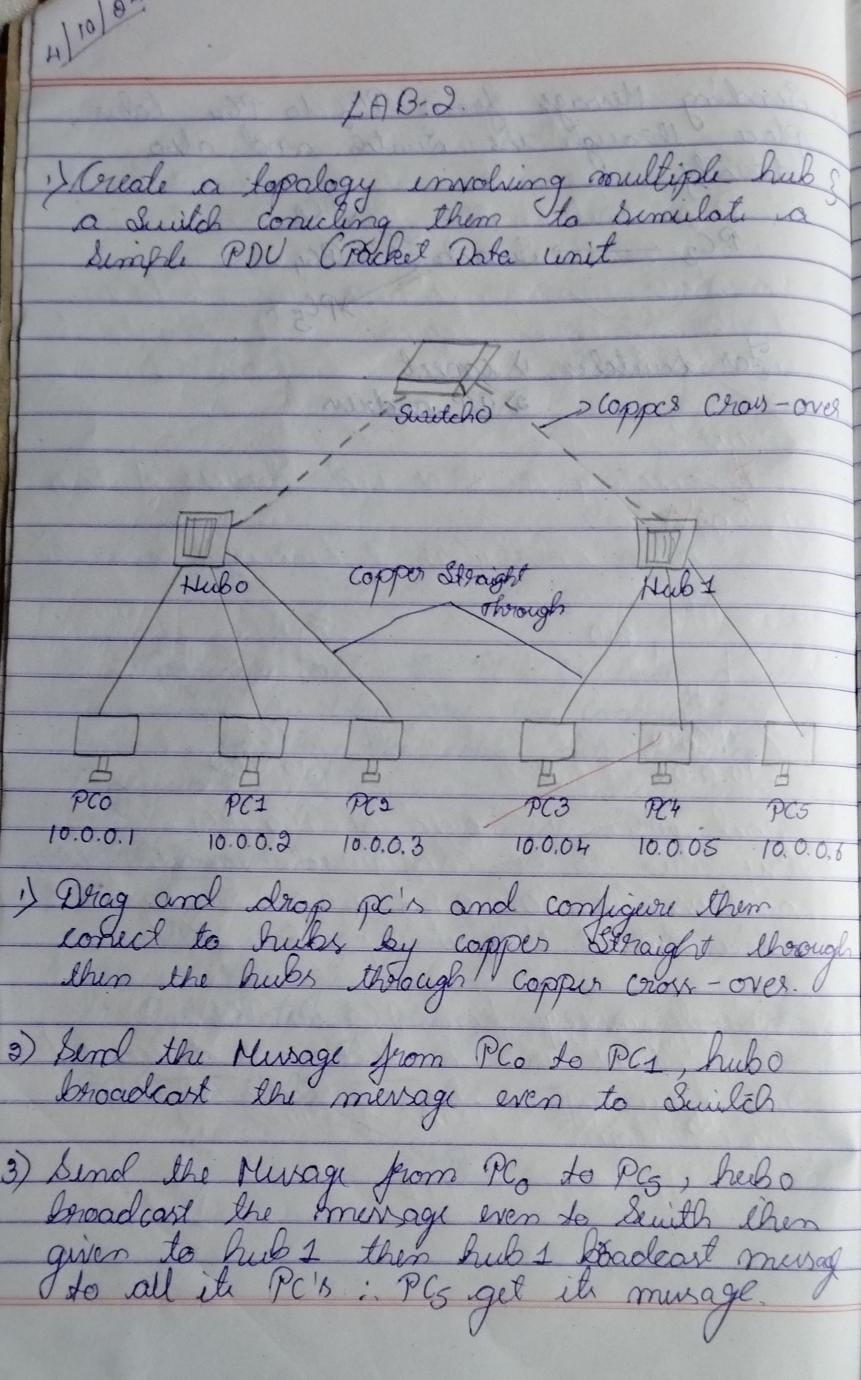 4/10/
LAB-2.
1) Create a topology involving multiple hub &
a Switch conecting them to simulate a
simple PDU (Packet Data unit
Switch0
Copper Cross-over
Hub0
Copper Straight
through
Hub1
PC0 PC1 PC2 PC3 PC4 PC5
10.0.0.1 10.0.0.2 10.0.0.3 10.0.04 10.0.05 10.0.0.6
1) Drag and drop pc's and configure them
conect to hubs by copper Straight through
then the hubs through copper cross-over.
2) Send the Message from PC0 to PC1, hub0
broadcast the message even to Switch
3) Send the Message from PC0 to PC5, hub0
broadcast the message even to Swith then
given to hub1 then hub1 broadcast messag
to all its PC's ∴ PC5 get its message.